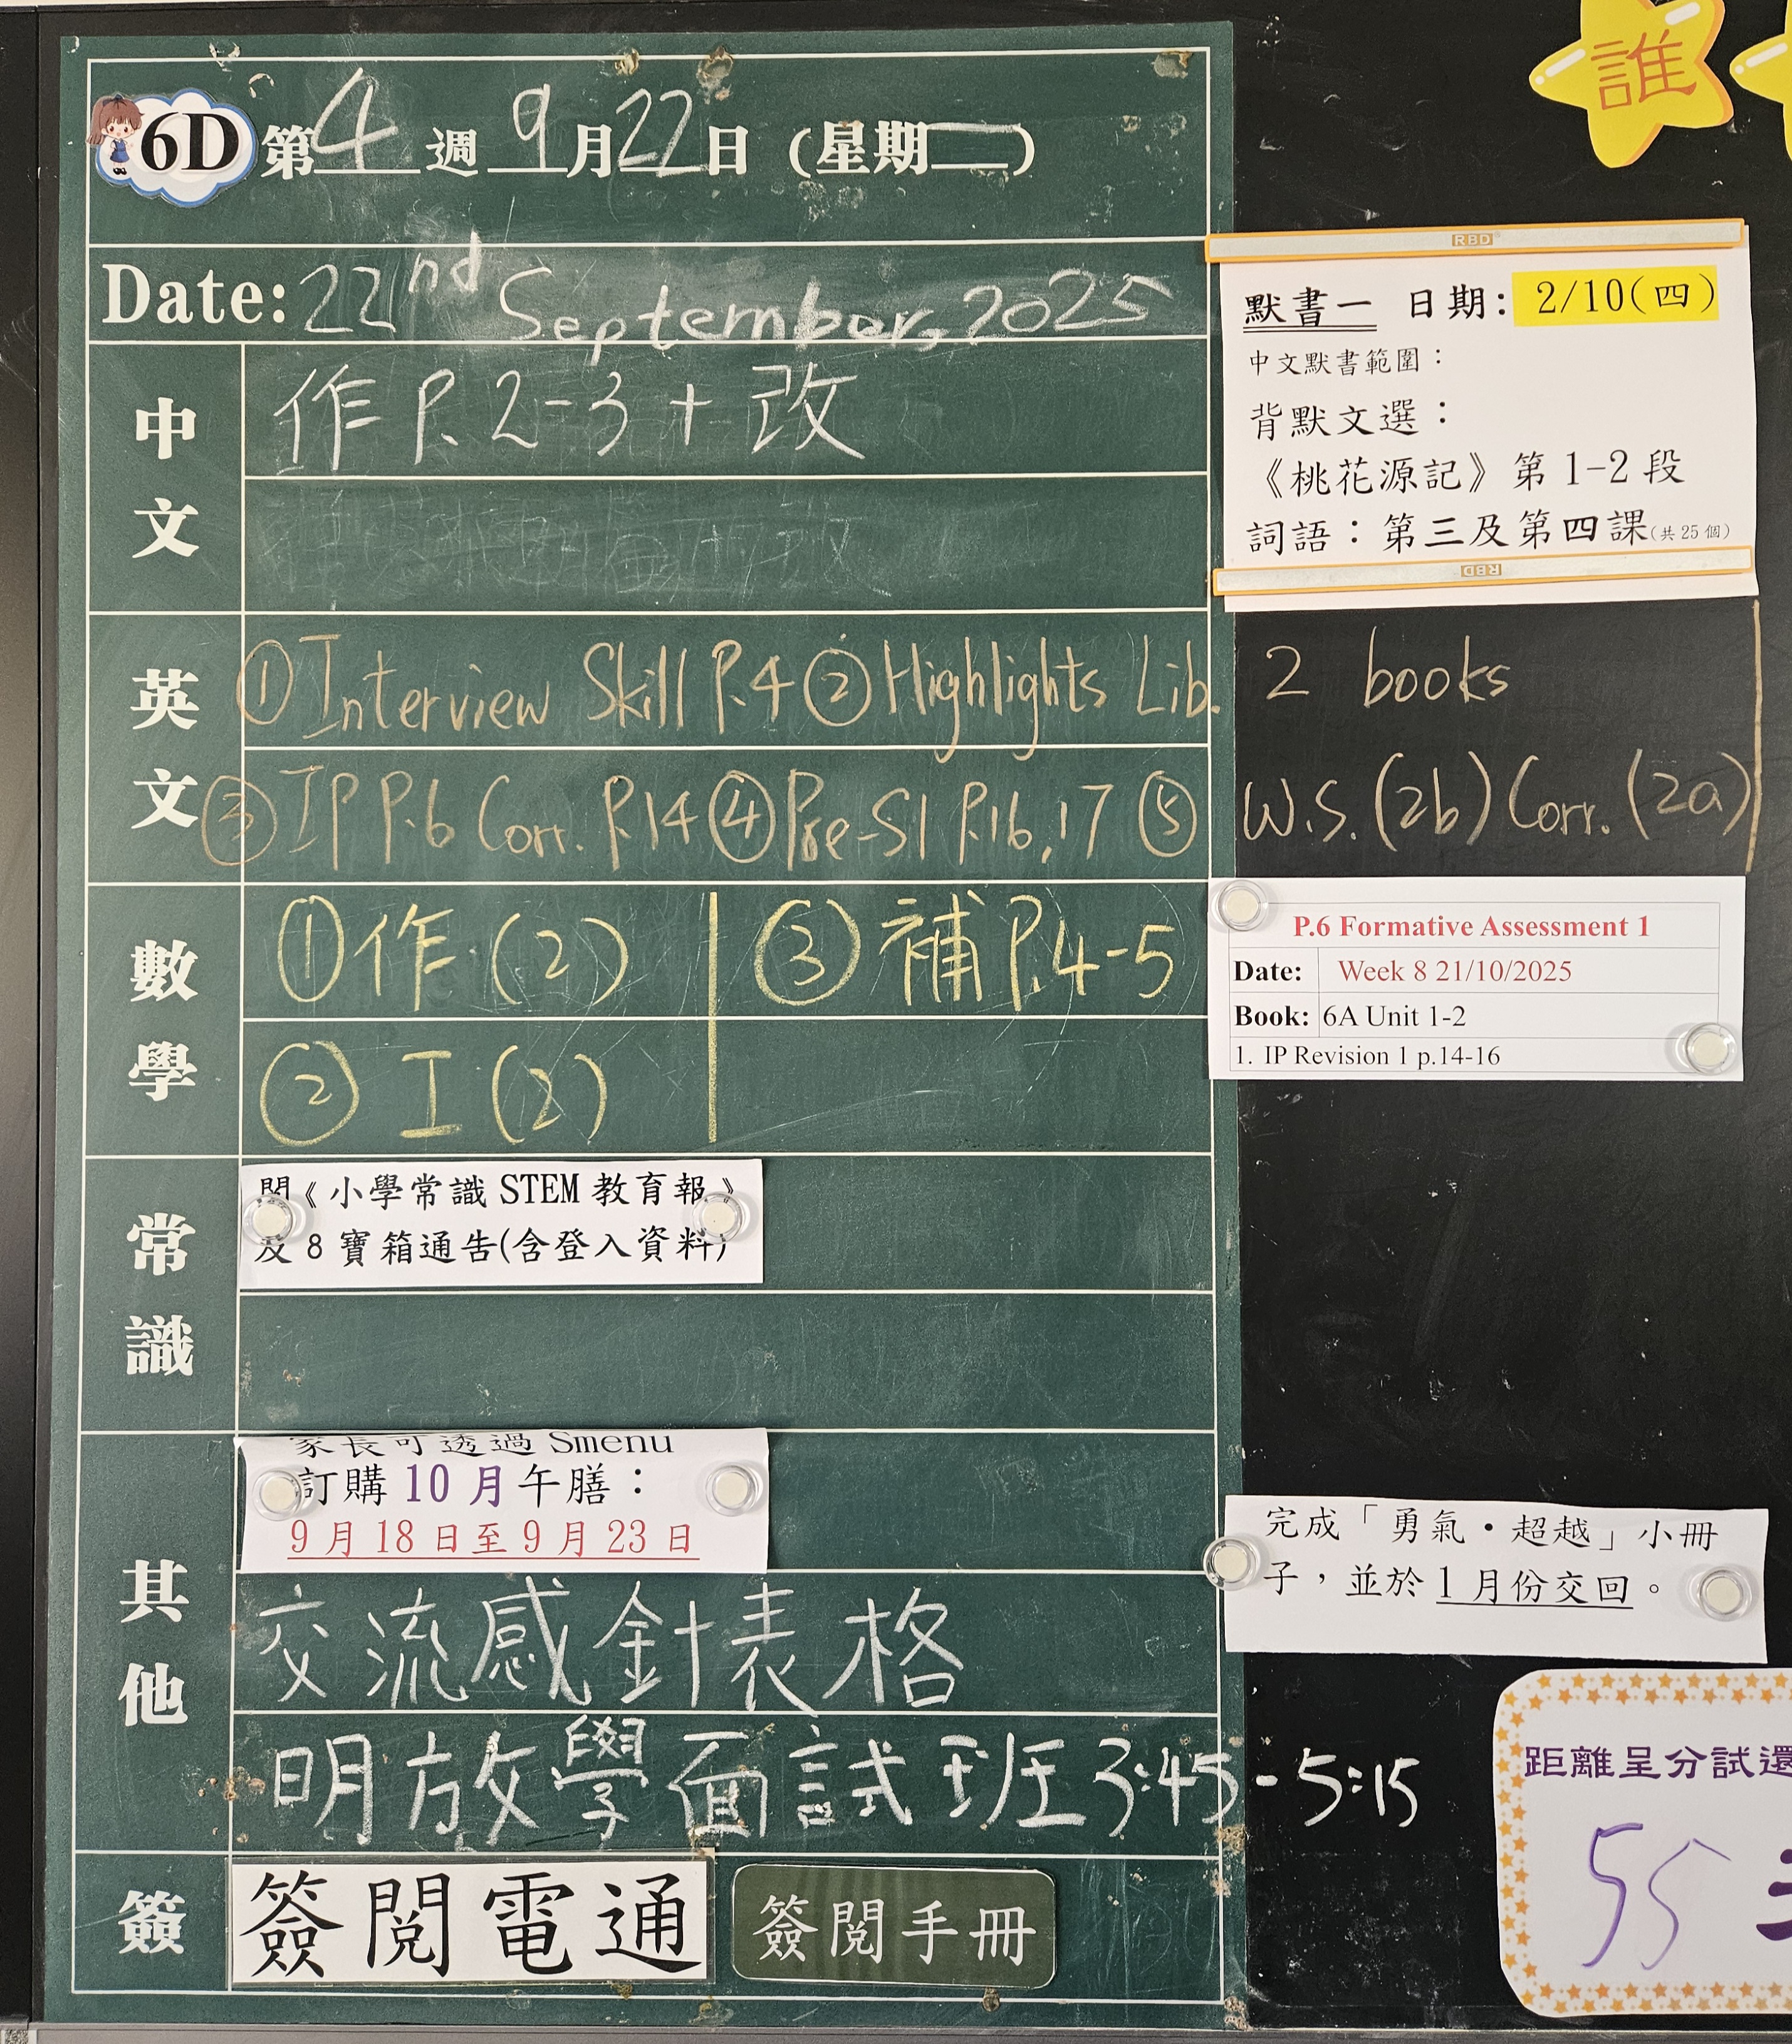 誰
6D 第4週 9月22日 (星期一)
Date: 22nd September, 2025
中文
作 P.2-3 + 改
英文
① Interview Skill P.4 ② Highlights Lib. 2 books
③ IP P.6 Corr. P.14 ④ Pre-S1 P.16, 17 ⑤ W.S. (2b) Corr. (2a)
數學
① 作 (2)
② I (2)
③ 補 P.4-5
常識
閱《小學常識 STEM 教育報》
及 8 寶箱通告(含登入資料)
其他
家長可透過 Smenu
訂購 10 月午膳：
9 月 18 日至 9 月 23 日
交流感針表格
明放學面試班 3:45 - 5:15
簽
簽閱電通
簽閱手冊
RBD
默書一 日期: 2/10(四)
中文默書範圍：
背默文選：
《桃花源記》第 1-2 段
詞語：第三及第四課(共 25 個)
RBD
P.6 Formative Assessment 1
Date: Week 8 21/10/2025
Book: 6A Unit 1-2
1. IP Revision 1 p.14-16
完成「勇氣・超越」小冊
子，並於 1 月份交回。
距離呈分試還
55